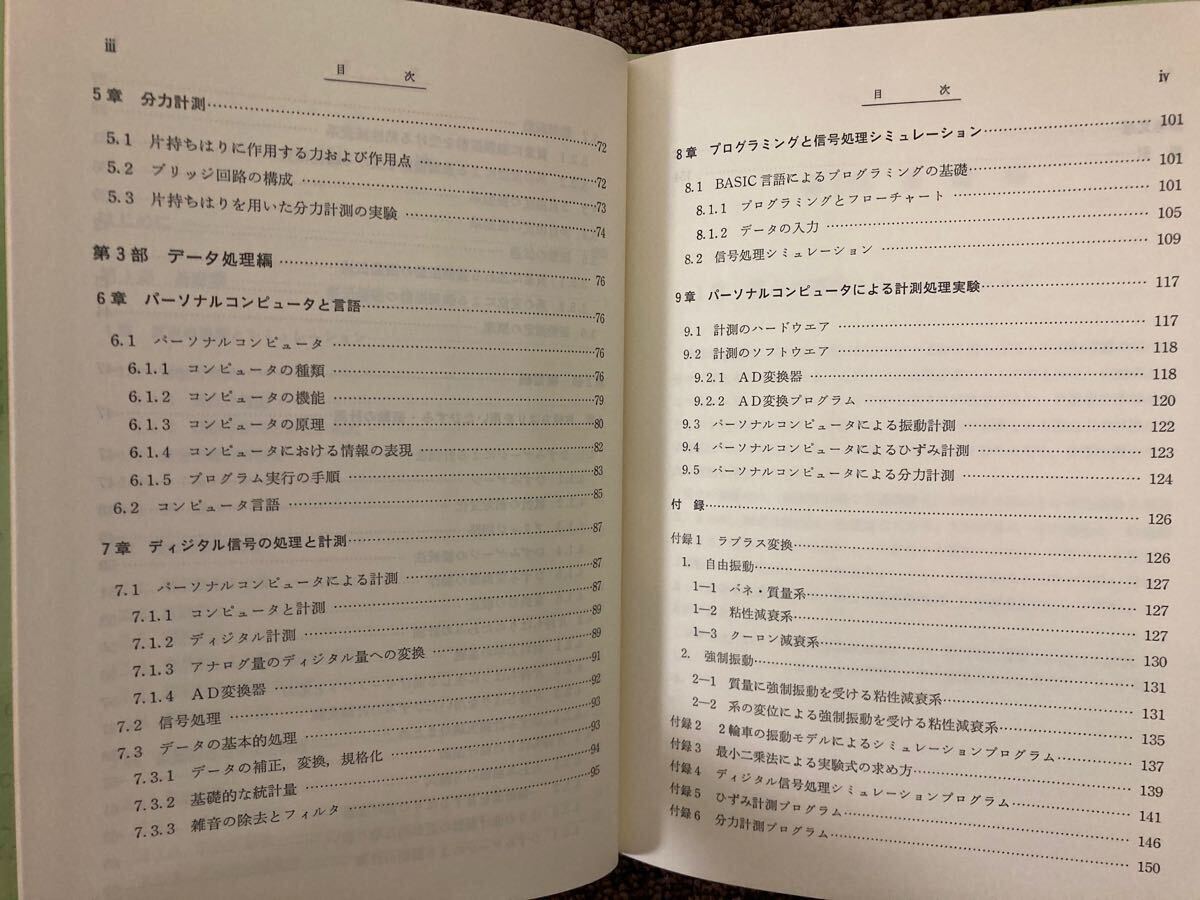 iii
目 次
5章 分力計測……72
5.1 片持ちはりに作用する力および作用点……72
5.2 ブリッジ回路の構成……73
5.3 片持ちはりを用いた分力計測の実験……74
第3部 データ処理編……76
6章 パーソナルコンピュータと言語……76
6.1 パーソナルコンピュータ……76
6.1.1 コンピュータの種類……76
6.1.2 コンピュータの機能……79
6.1.3 コンピュータの原理……80
6.1.4 コンピュータにおける情報の表現……82
6.1.5 プログラム実行の手順……83
6.2 コンピュータ言語……85
7章 ディジタル信号の処理と計測……87
7.1 パーソナルコンピュータによる計測……87
7.1.1 コンピュータと計測……87
7.1.2 ディジタル計測……89
7.1.3 アナログ量のディジタル量への変換……89
7.1.4 AD変換器……91
7.2 信号処理……92
7.3 データの基本的処理……93
7.3.1 データの補正，変換，規格化……93
7.3.2 基礎的な統計量……94
7.3.3 雑音の除去とフィルタ……95
iv
目 次
8章 プログラミングと信号処理シミュレーション……101
8.1 BASIC言語によるプログラミングの基礎……101
8.1.1 プログラミングとフローチャート……101
8.1.2 データの入力……105
8.2 信号処理シミュレーション……109
9章 パーソナルコンピュータによる計測処理実験……117
9.1 計測のハードウエア……117
9.2 計測のソフトウエア……118
9.2.1 AD変換器……118
9.2.2 AD変換プログラム……120
9.3 パーソナルコンピュータによる振動計測……122
9.4 パーソナルコンピュータによるひずみ計測……123
9.5 パーソナルコンピュータによる分力計測……124
付 録……126
付録1 ラプラス変換……126
1. 自由振動……127
1—1 バネ・質量系……127
1—2 粘性減衰系……127
1—3 クーロン減衰系……130
2. 強制振動……131
2—1 質量に強制振動を受ける粘性減衰系……131
2—2 系の変位による強制振動を受ける粘性減衰系……135
付録2 2輪車の振動モデルによるシミュレーションプログラム……137
付録3 最小二乗法による実験式の求め方……139
付録4 ディジタル信号処理シミュレーションプログラム……141
付録5 ひずみ計測プログラム……146
付録6 分力計測プログラム……150